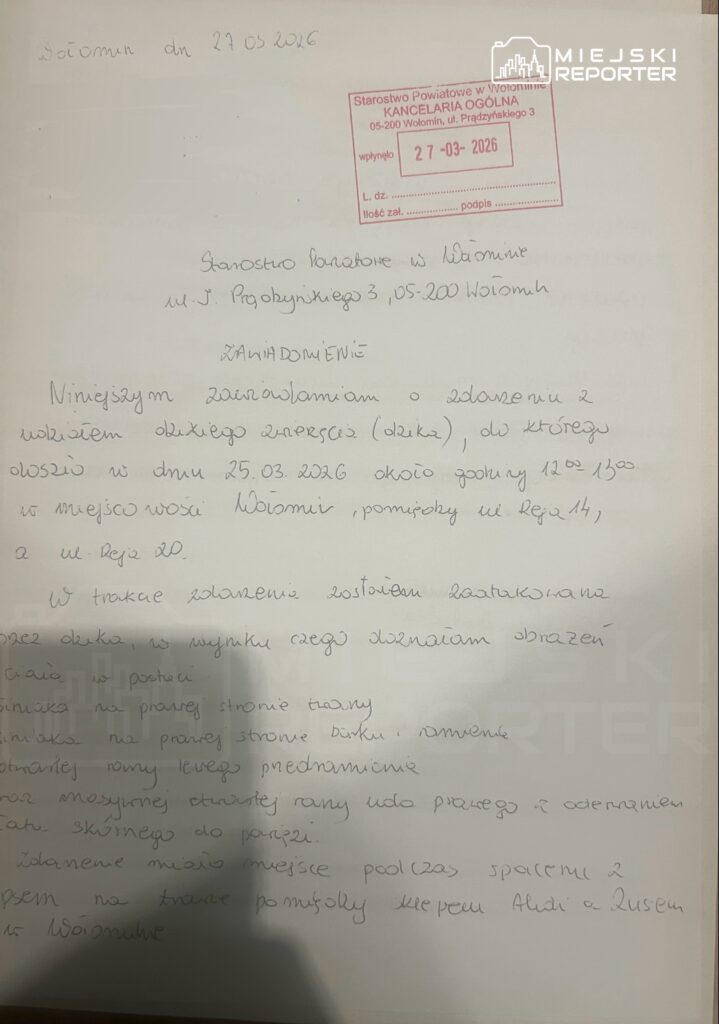 Wołomin dn 27 03 2026
MIEJSKI
REPORTER
Starostwo Powiatowe w Wołominie
KANCELARIA OGÓLNA
05-200 Wołomin, ul. Prądzyńskiego 3
wpłynęło 27 -03- 2026
L. dz.
Ilość zał. podpis
Starostwo Powiatowe w Wołominie
ul. J. Prądzyńskiego 3, 05-200 Wołomin
ZAWIADOMIENIE
Niniejszym zawiadamiam o zdarzeniu z
udziałem dzikiego zwierzęcia (dzika), do którego
doszło w dniu 25.03.2026 około godziny 12:00 13:00
w miejscowości Wołomin, pomiędzy ul Reja 14,
a ul Reja 20.
W trakcie zdarzenia zostałem zaatakowana
przez dzika, w wyniku czego doznałam obrażeń
ciała w postaci
siniaka na prawej stronie twarzy
siniaka na prawej stronie barku i ramienia
otwartej rany lewego przedramienia
oraz masywnej otwartej rany uda prawego z oderwaniem
płatu skórnego do powięzi.
Zdarzenie miało miejsce podczas spaceru z
psem na trasie pomiędzy sklepem Aldi a Zusem
w Wołominie
MIEJSKI
REPORTER